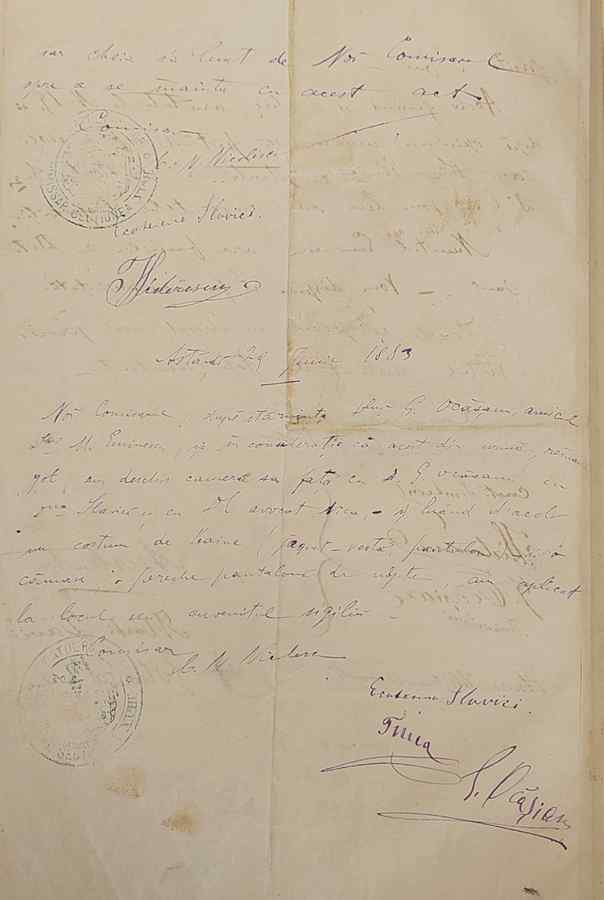 iar cheia s'a luat de Noi Comisaru
spre a se înainta cu acest act
Comisar
C. N. Nicolescu
Ecaterina Slavici.
Astăzi 29 Iunie 1883
Noi Comisarul, după stăruința d-lui G. Ocășanu, amicul
d-lui M. Eminescu, și în considerație că acest din urmă, rămas
gol, am deschis camera sa față cu D. G. Ocășanu, cu
D-na Slavici și cu Dl. avocat, și luând d'acolo
un costum de haine (jaquet-vestă pantalon) și o
cămașe, o pereche pantaloni de nópte, am aplicat
la locul seu cuvenitul sigiliu
Comisar
C. N. Nicolescu
Ecaterina Slavici.
G. Ocășanu